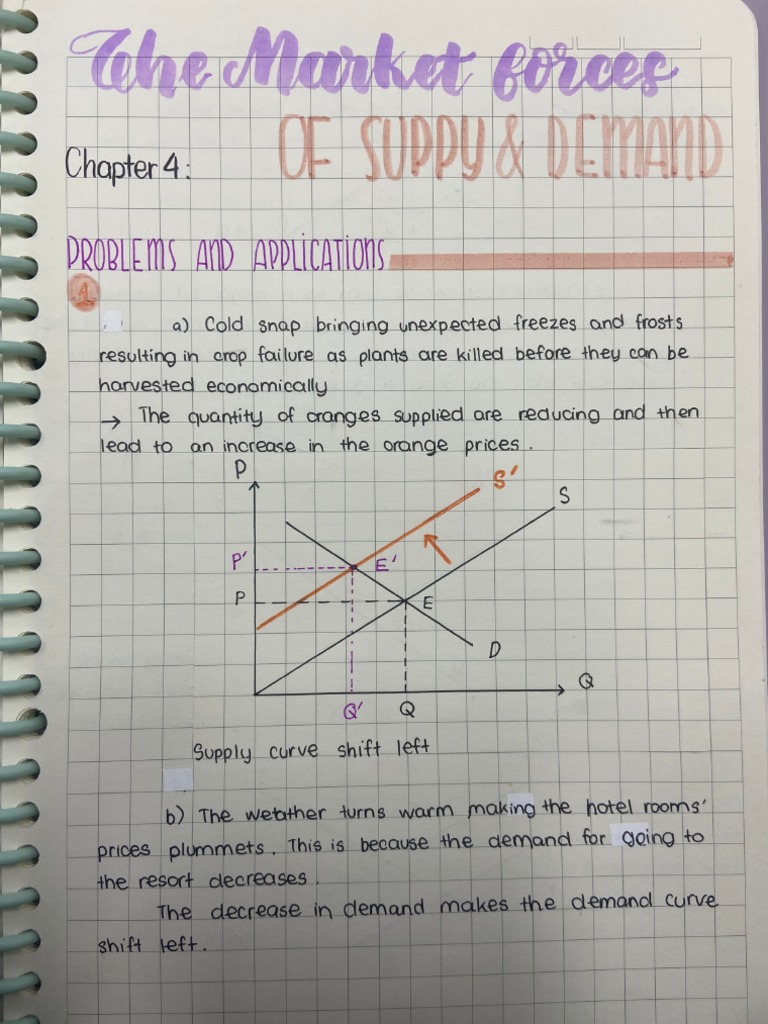 The Market forces
OF SUPPY & DEMAND
Chapter 4:
PROBLEMS AND APPLICATIONS
1
a) Cold snap bringing unexpected freezes and frosts
resulting in crop failure as plants are killed before they can be
harvested economically
→ The quantity of oranges supplied are reducing and then
lead to an increase in the orange prices.
P
S'
S
P'
E'
P
E
D
Q
Q'
Q
Supply curve shift left
b) The weather turns warm making the hotel rooms'
prices plummets. This is because the demand for going to
the resort decreases.
The decrease in demand makes the demand curve
shift left.